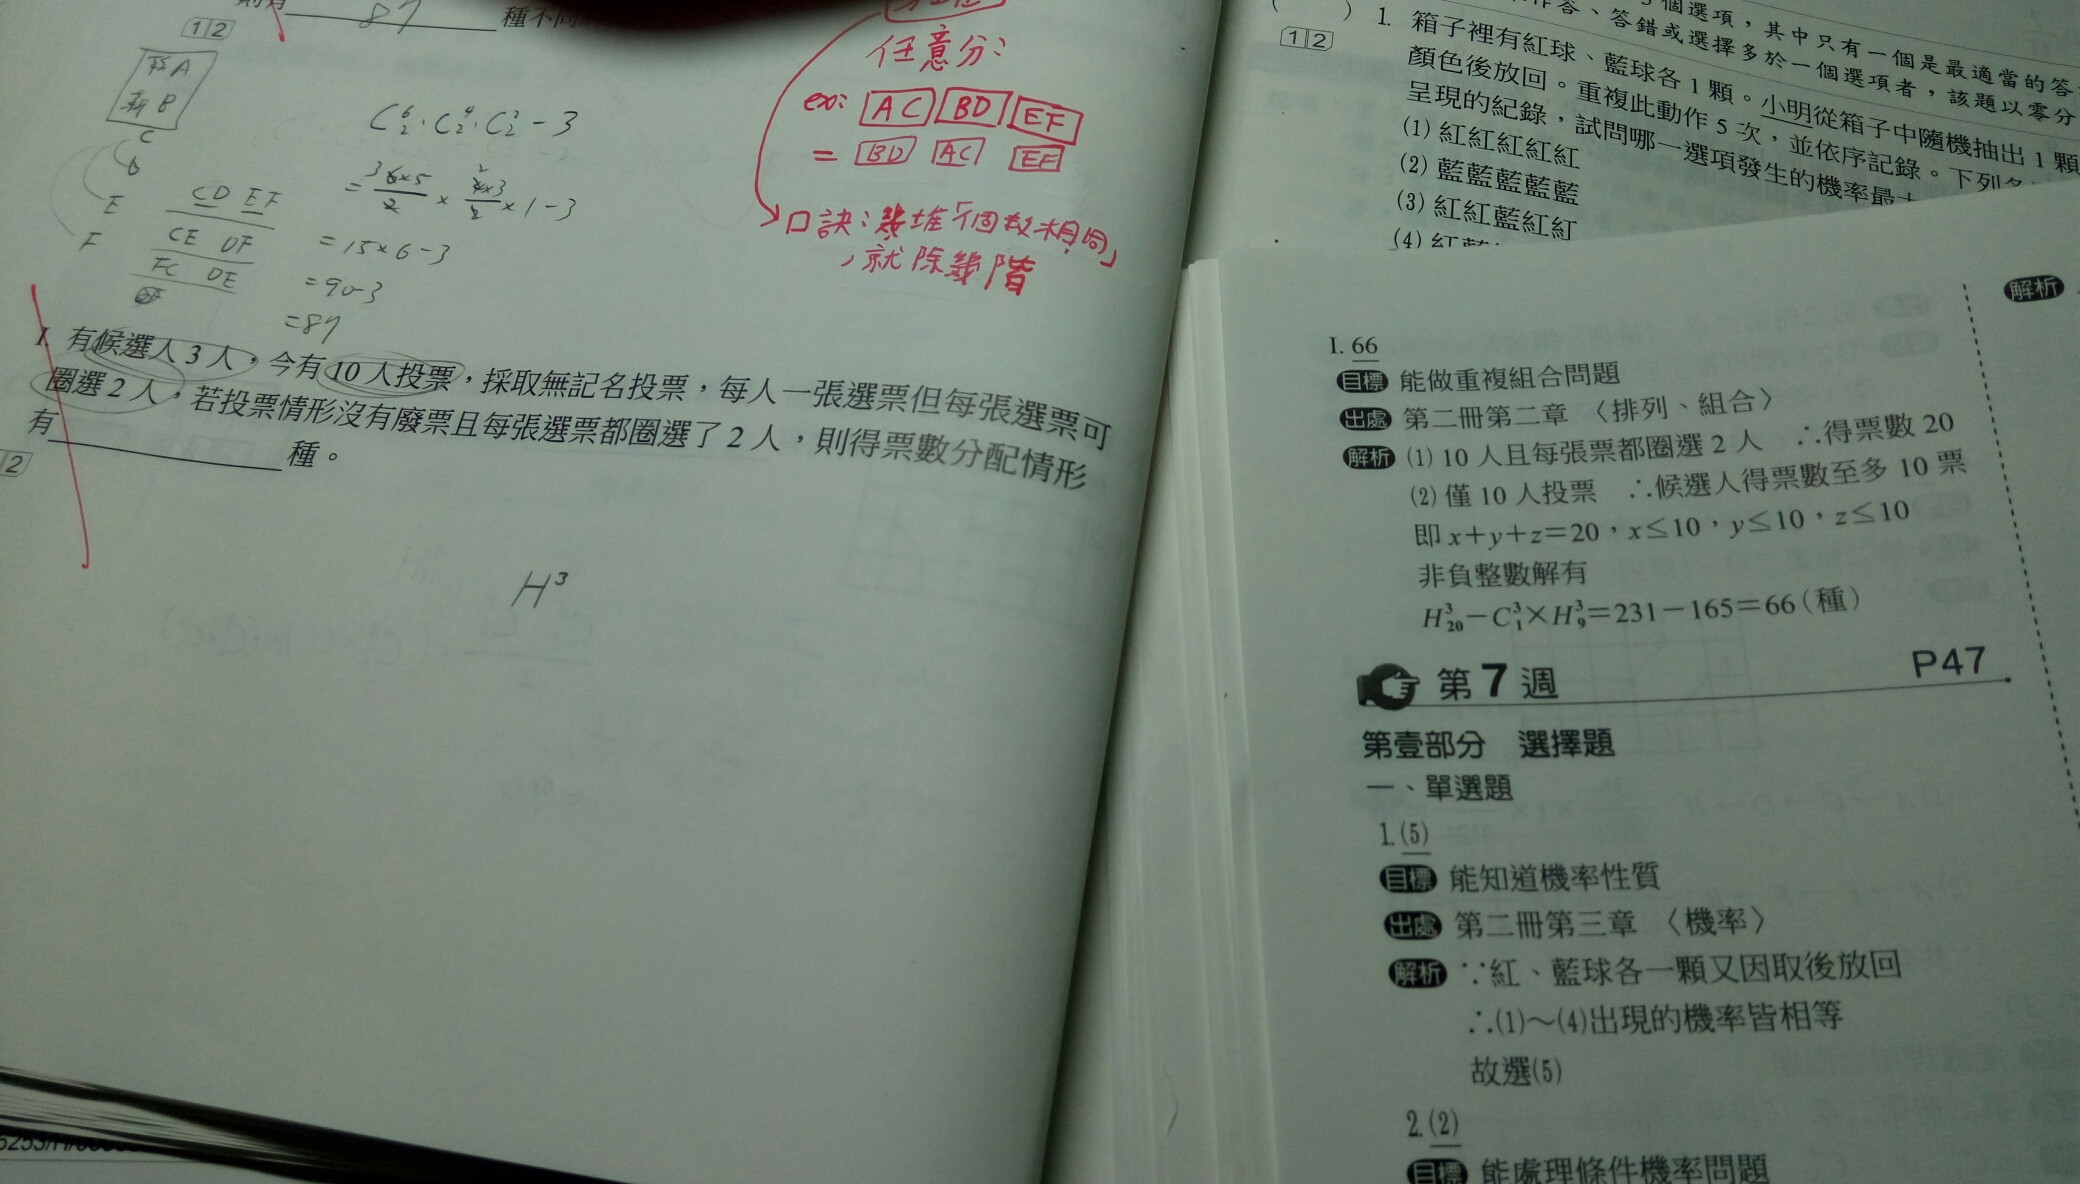 87
種不同
1 2
A
B
C
D
E
F
CD EF
CE DF
FC DE
C⁶₂·C⁴₂·C²₂-3
= 6×5/2 × 4×3/2 ×1-3
=15×6-3
=90-3
=87
任意分:
ex: AC BD EF
= BD AC EF
口訣:幾堆「個數相同」
,就除幾階
I. 有候選人3人,今有10人投票,採取無記名投票,每人一張選票但每張選票可
圈選2人,若投票情形沒有廢票且每張選票都圈選了2人,則得票數分配情形
有 種。
2
H³
個選項,其中只有一個是最適當的答
作答、答錯或選擇多於一個選項者,該題以零分
( ) 1. 箱子裡有紅球、藍球各1顆。小明從箱子中隨機抽出1顆
1 2
顏色後放回。重複此動作5次,並依序記錄。下列
呈現的紀錄,試問哪一選項發生的機率最
(1) 紅紅紅紅紅
(2) 藍藍藍藍藍
(3) 紅紅藍紅紅
(4) 紅藍
解析
I. 66
目標 能做重複組合問題
出處 第二冊第二章 〈排列、組合〉
解析 (1) 10人且每張票都圈選2人 ∴得票數20
(2) 僅10人投票 ∴候選人得票數至多10票
即x+y+z=20,x≤10,y≤10,z≤10
非負整數解有
H³₂₀-C³₁×H³₉=231-165=66(種)
第7週 P47
第壹部分 選擇題
一、單選題
1. (5)
目標 能知道機率性質
出處 第二冊第三章 〈機率〉
解析 ∵紅、藍球各一顆又因取後放回
∴(1)~(4)出現的機率皆相等
故選(5)
2. (2)
目標 能處理條件機率問題